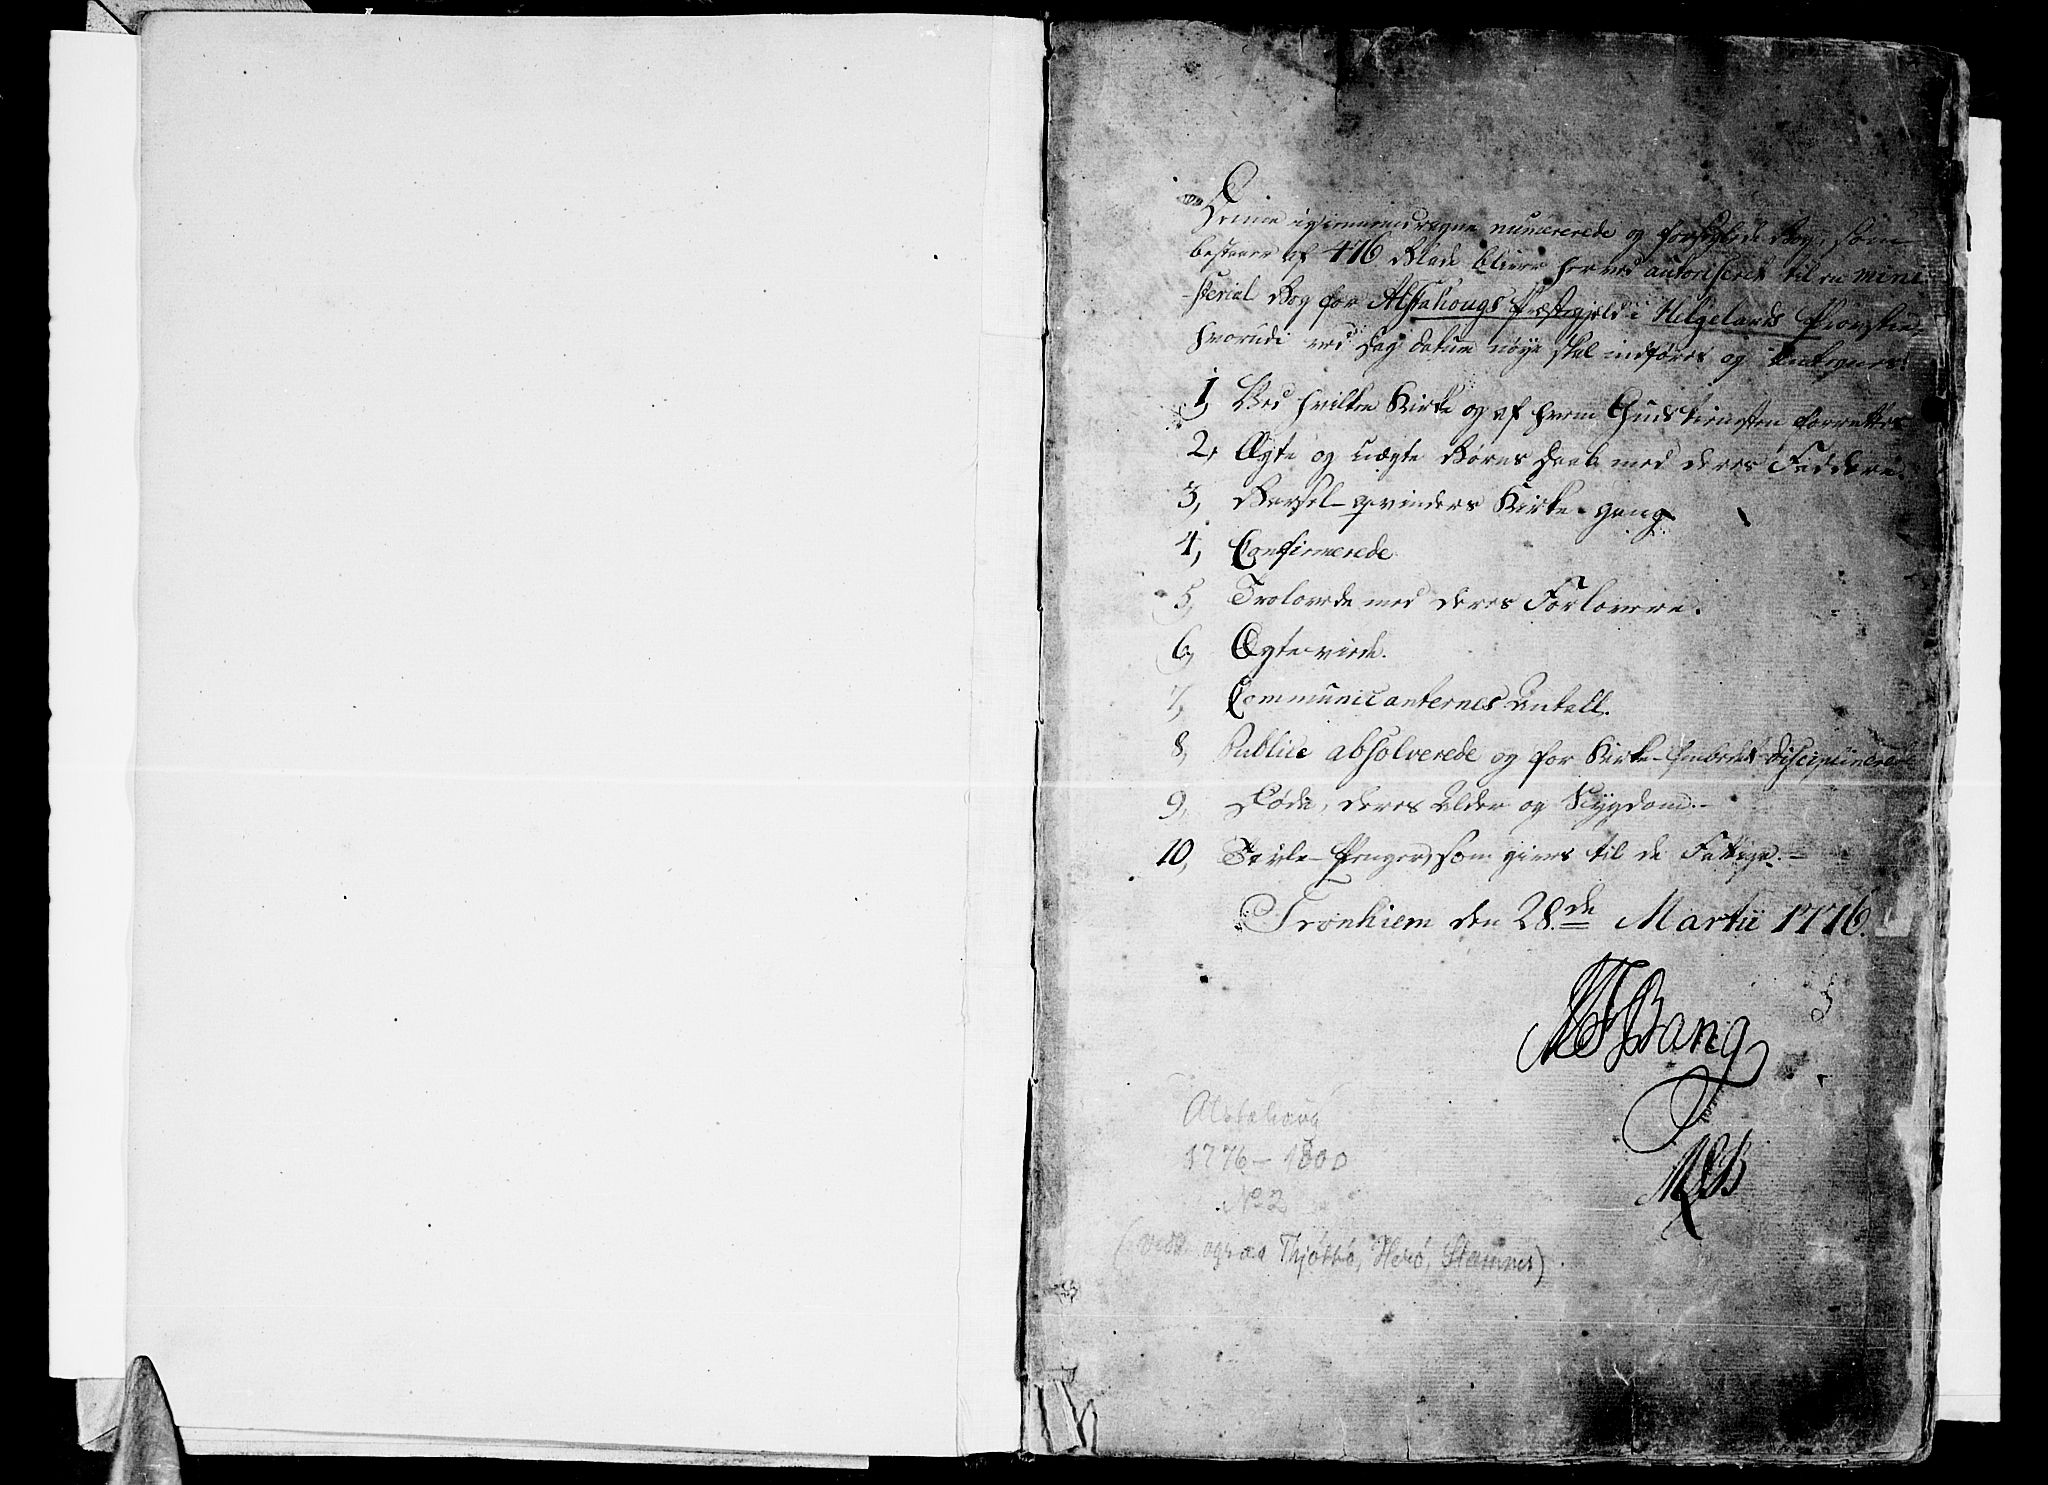 Denne igiennemdragne numererede og forseglede Bog, som
bestaaer af 416 Blade bliver herved autoriseret til en mini
sterial Bog for Alstahougs Præstegjeld i Helgelands Provstie,
hvorudi ved Dag datum nøye skal indføres og antegnes:
1, Ved hvilken Kirke og af hvem Gudstienesten forrettes
2, Ægte og uægte Børns Daab med deres Faddere.
3, Barsel-qvinders Kirke-gang
4, Confirmerede
5, Trolovede med deres Forlovere.
6, Ægteviede.
7, Communicanternes Antall.
8, Publice absolverede og for Kirke-Embedet disciplinerede
9, Døde, deres Alder og Sygdom.-
10, Tavle-Penger, som gives til de Fattige.-
Tronhiem den 28de Martii 1776.
MF Bang
Alstahoug
1776-1800
No 2
(Vedk. ogsaa Thjøttø, Herø, Stamnes)